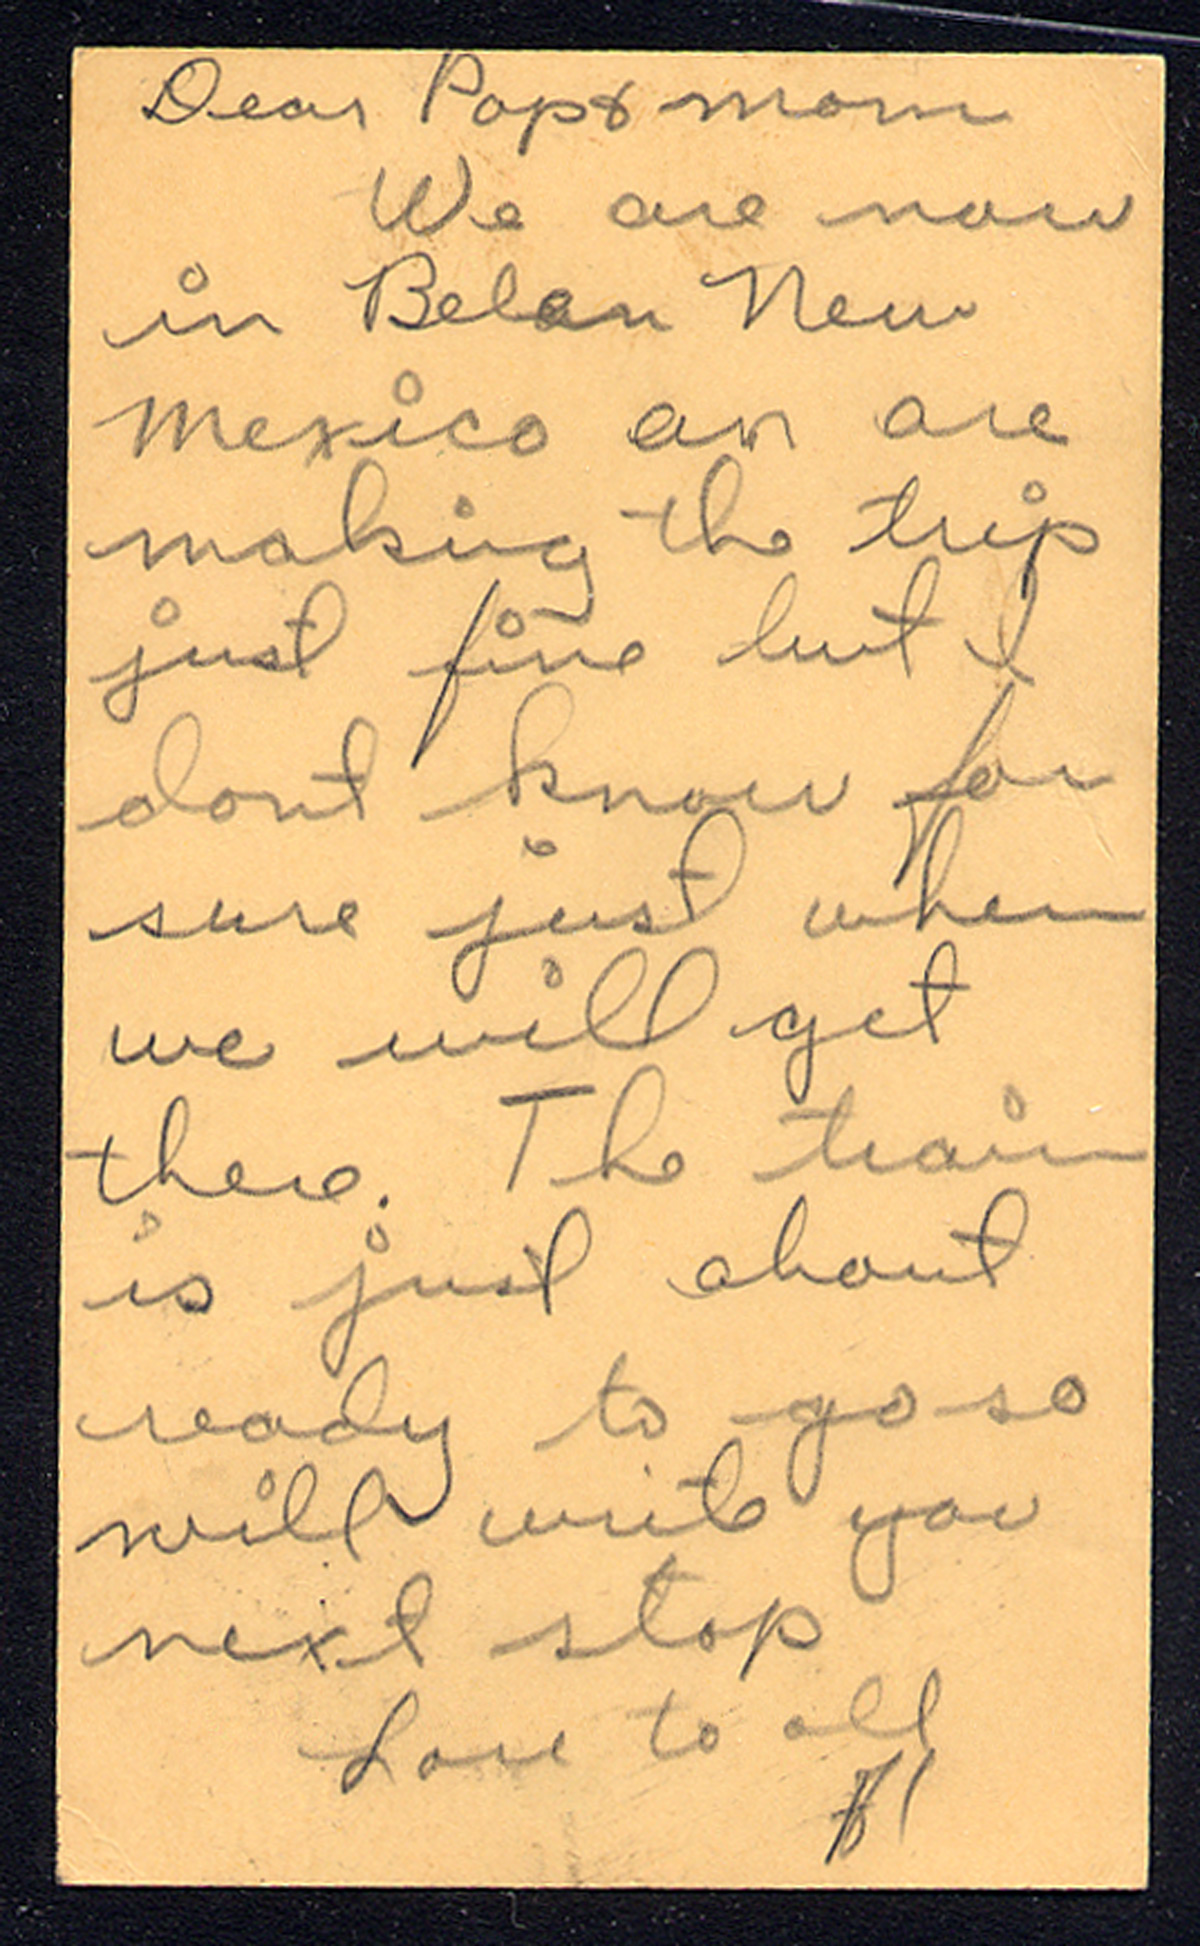 Dear Pop & Mom
We are now
in Belen New
Mexico an are
making the trip
just fine but I
dont know for
sure just when
we will get
there. The train
is just about
ready to go so
will write you
next stop
Love to all